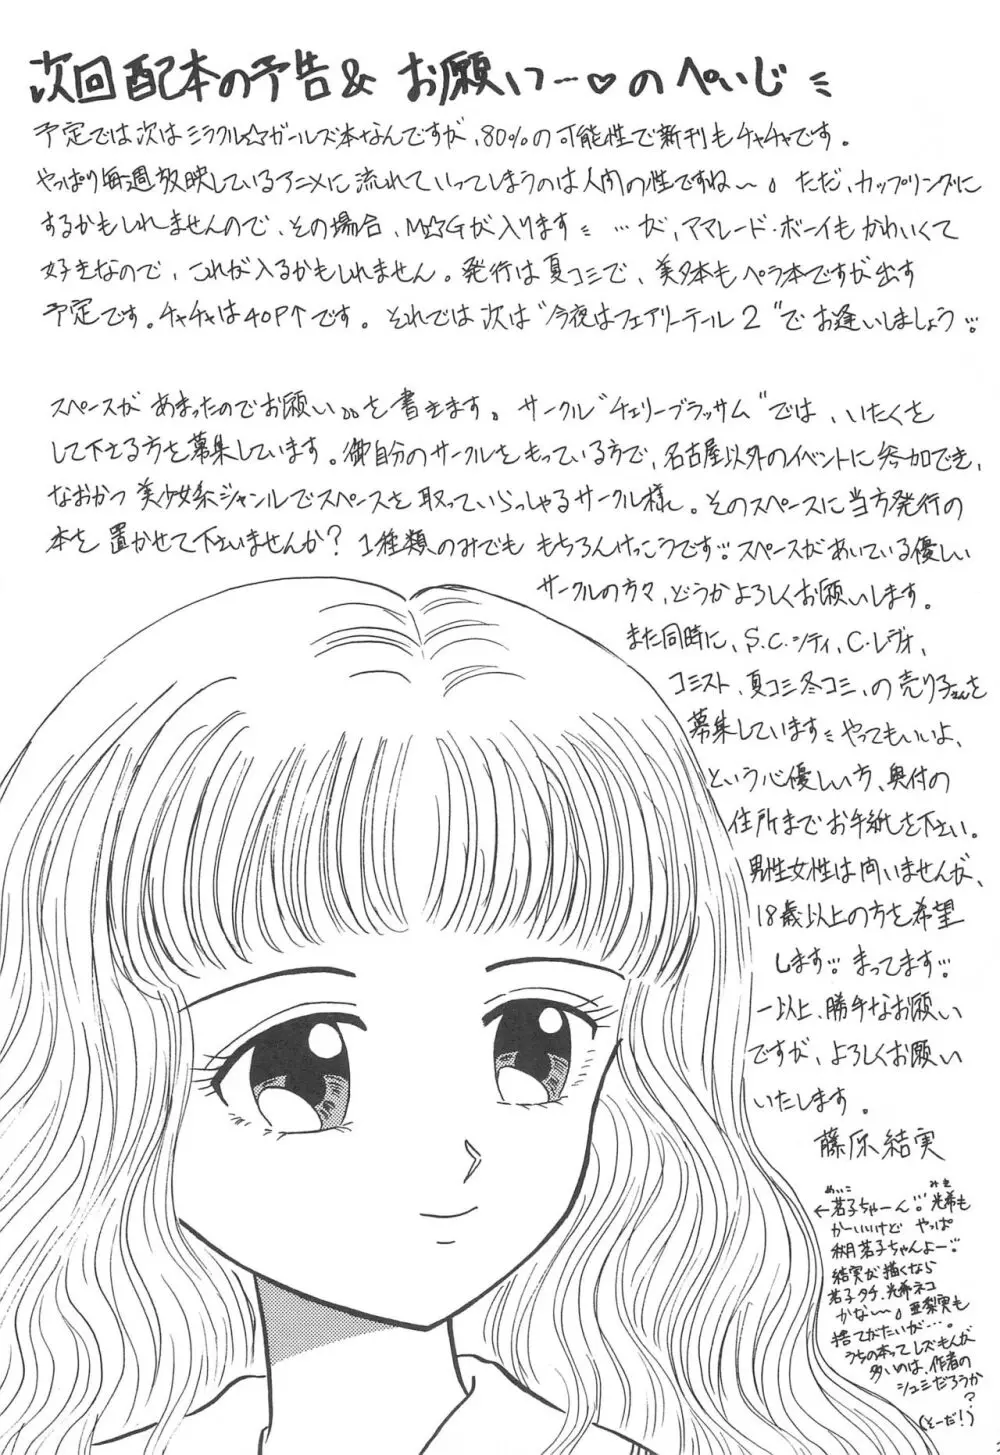 次回配本の予告& お願いっ…♡のぺぇじ
予定では次はミラクル☆ガールズ本なんですが、80%の可能性で新刊もチャチャです。
やっぱり毎週放映しているアニメに流れていってしまうのは人間の性ですね〜。ただ、カップリングに
するかもしれませんので、その場合、M☆Gが入ります …が、ママレード・ボーイもかわいくて
好きなので、これが入るかもしれません。発行は夏コミで、美夕本もペラ本ですが出す
予定です。チャチャは40P↑です。それでは次は"今夜はフェアリーテール2"でお逢いしましょう
スペースがあまったのでお願い。。を書きます。サークル"チェリーブラッサム"では、いたくを
して下さる方を募集しています。御自分のサークルをもっている方で、名古屋以外のイベントに参加でき、
なおかつ美少女系ジャンルでスペースを取っていらっしゃるサークル様。そのスペースに当方発行の
本を置かせて下さいませんか?1種類のみでももちろんけっこうです スペースがあいている優しい
サークルの方々、どうかよろしくお願いします。
また同時に、S.C.シティ、C・レヴォ、
コミスト、夏コミ冬コミ、の売り子さんを
募集しています やってもいいよ、
という心優しい方、奥付の
住所までお手紙を下さい。
男性女性は問いませんが、
18歳以上の方を希望
します まってます
一以上、勝手なお願い
ですが、よろしくお願い
いたします。
藤原結実
めいこ みき
←茗子ちゃーん 光希も
かーいいけど やっぱ
秋月茗子ちゃんよー
結実が描くなら
茗子タチ、光希ネコ
かな〜。亜梨実も
捨てがたいが…。
うちの本ってレズもんが
多いのは、作者の
シュミだろうか
?
(そーだ!)